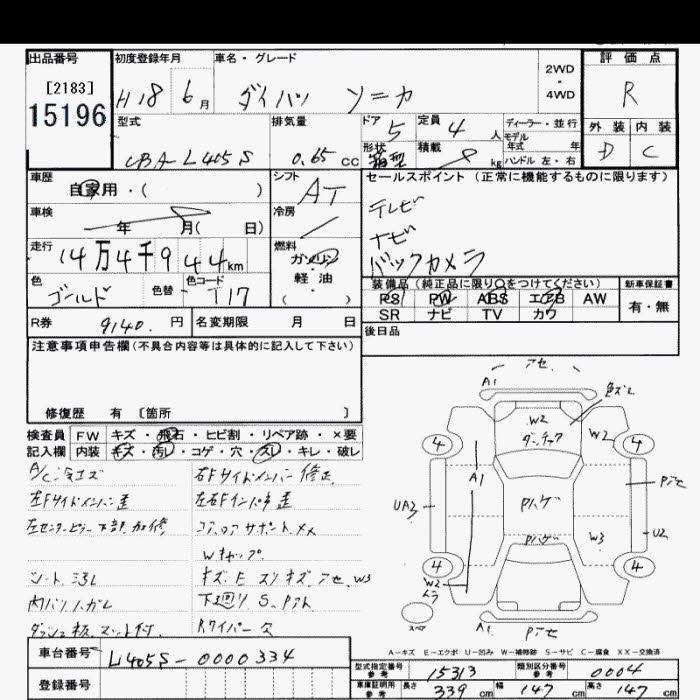 出品番号 初度登録年月 車名・グレード 2WD・4WD 評価点
[2183]
15196 H18 6月 ダイハツ ソニカ R
型式 排気量 ドア 5 定員 4人 ディーラー・並行 外装 内装
モデル年式 年
CBA-L405S 0.65cc 形状 箱型 積載 kg ハンドル 左・右 D C
車歴 自家用・( ) シフト AT セールスポイント (正常に機能するものに限ります)
車検 年 月( 日) 冷房 テレビ
ナビ
走行 14万4千944km 燃料 ガソリン・軽油 ( ) バックカメラ
色 ゴールド 色替 色コード T17 装備品 (純正品に限り○をつけてください) 新車保証書
PS PW ABS エアB AW 有・無
R券 9140.円 名変期限 月 日 SR ナビ TV カワ
注意事項申告欄(不具合内容等は具体的に記入して下さい) 後日品
修復歴 有 [箇所 ]
検査員 FW キズ・飛石・ヒビ割・リペア跡・×要
記入欄 内装 キズ・汚レ・コゲ・穴・スレ・キレ・破レ
A/C 冷エズ 右Fサイドメンバー修正
左Fサイドメンバー歪 左右Fインパネ歪
左センターピラー下部加修 コアロアサポートXX
Wキャップ
シート汚レ キズ E スリキズ アセ W3
内バリハガレ 下廻り S. Pアト
ダッシュ板、マット付 Rワイパー欠
アセ
A1 色ズレ
W2 W2
4 ダッチョウ 4
A1 Pアセ
UA3 Pハゲ U2
Pハゲ W3
4 4
W2
スペア A1 Pアセ
A-キズ E-エクボ U-凹み W-補修跡 S-サビ C-腐食 XX-交換済
車台番号 L405S-0000334 型式指定番号 参考 15313 類別区分番号 参考 0004
登録番号 車庫証明用 参考 長さ 339cm 幅 147cm 高さ 147cm